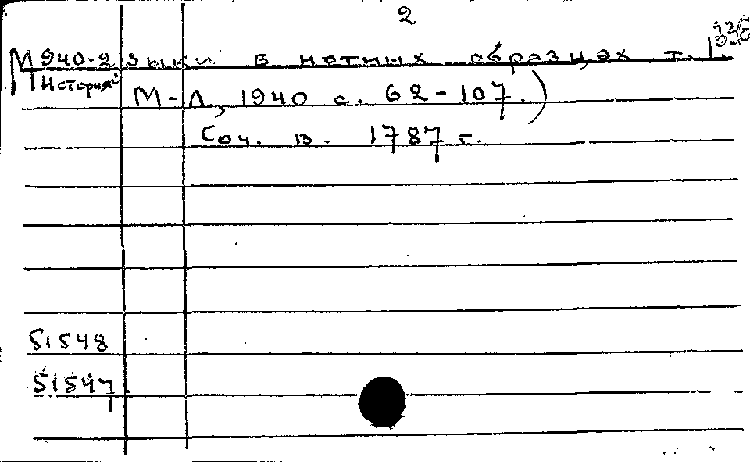 2
М940-2 зыки в нотных образцах т. 1.
История
М-Л, 1940 с. 62-107.)
Соч. в. 1787 г.
51548
51547